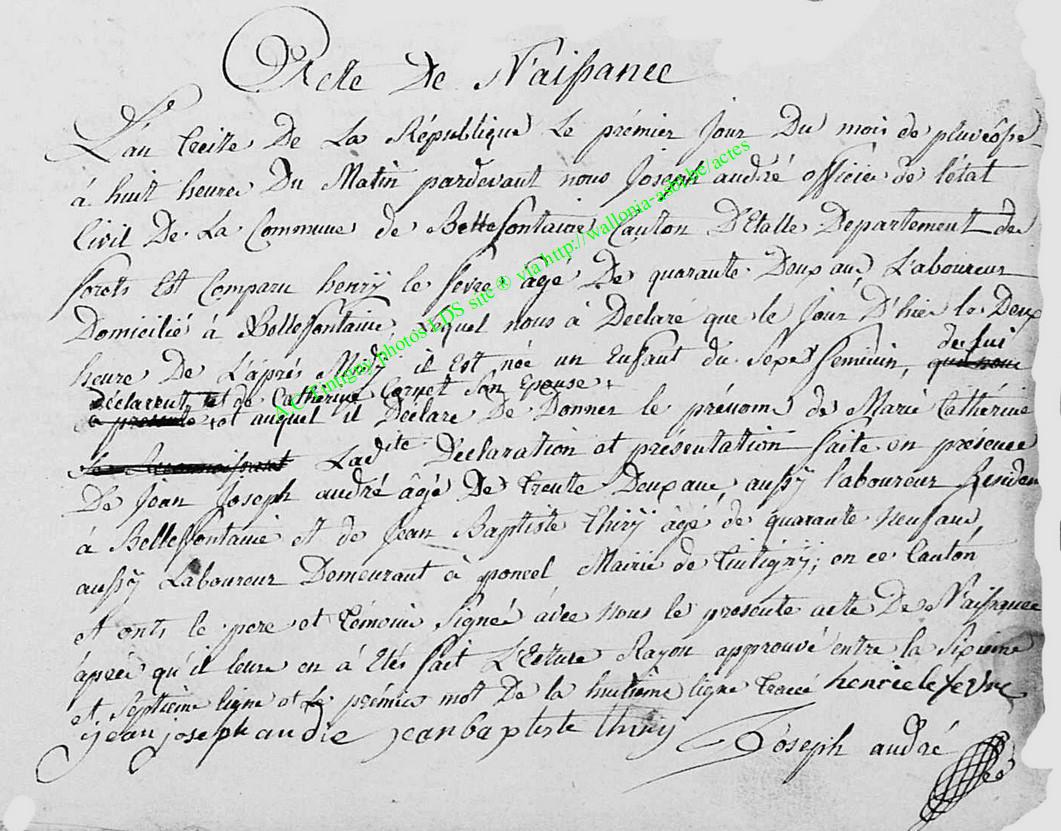 Acte De Naissance
L'an treize De La République Le prémier Jour Du mois de pluviôse
à huit heures Du Matin pardevant nous Joseph andré officier de l'état
Civil De La Commune de Bellefontaine Canton D'Etalle Departement des
forets Est Comparu henrÿ le fevre âgé De quarante Deux ans L'aboureur
Domicilié à Bellefontaine, Lequel nous à Déclaré que le Jour D'hier les Deux
heure De L'aprés Midÿ il Est née un Enfant du Sexe feminin, de lui
déclarent et de Catherine Cornet Son Epouse
et auquel il Déclare De Donner le prénoms de Marie Cathérine
Ladite Déclaration et présentation faite en présence
De Jean Joseph andré âgé De trente Deux ans, aussÿ laboureur Residen
à Bellefontaine et de Jean Baptiste thirÿ âgé de quarante Neuf ans,
aussÿ Laboureur Demeurant à poncel Mairie de tintignÿ; en ce Canton
et onts le pere et témoins Signés avec nous le présente acte De Naissance
âprés qu'il leurs en à Etés fait L'Ecture Rayon approuvé entre la Sixieme
et Septieme ligne et Le prémier mot De la huitieme ligne tracé henri le fevre
jean joseph andre jean baptiste thiry Joseph andré
A.C. Tintigny photos LDS site ® via http://wallonia-asbl.be/actes